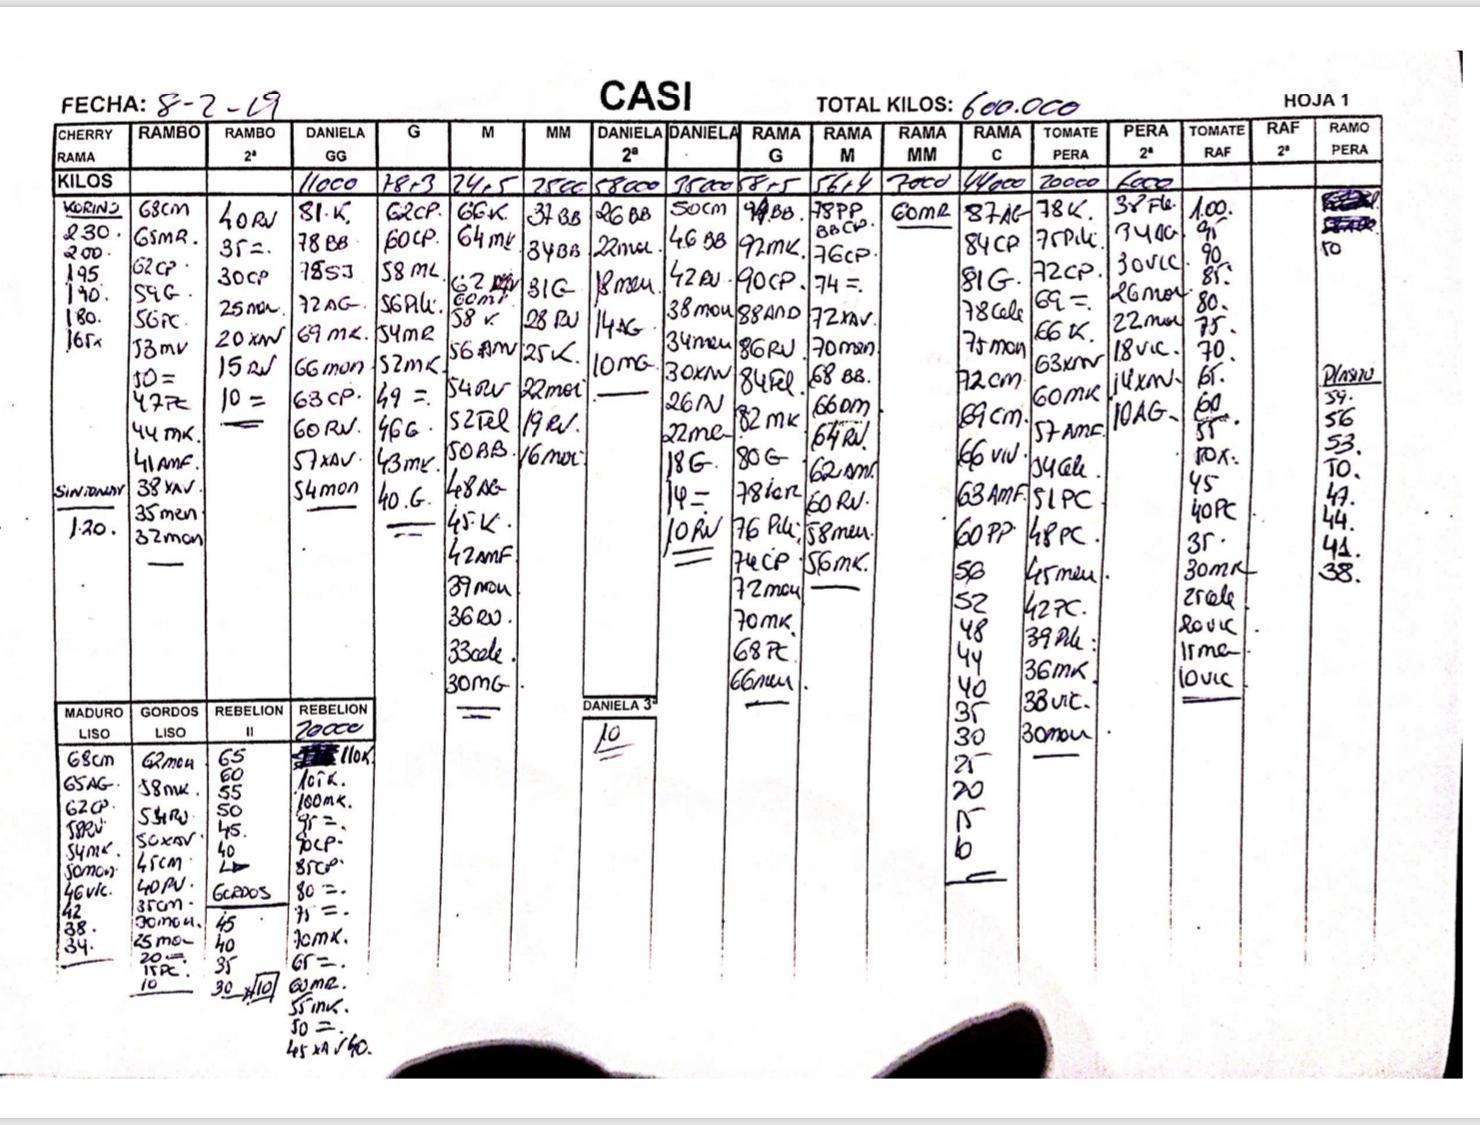 FECHA: 8-2-19
CASI
TOTAL KILOS: 600.000
HOJA 1
CHERRY RAMA
RAMBO
RAMBO 2ª
DANIELA GG
G
M
MM
DANIELA 2ª
DANIELA
RAMA G
RAMA M
RAMA MM
RAMA C
TOMATE PERA
PERA 2ª
TOMATE RAF
RAF 2ª
RAMO PERA
KILOS
11000
58000
35000
7000
44000
20000
6000
230.
200.
195
190.
180.
1.20.
68cm
65MR.
62CP
59G
56PC
50=
47PC
44MK.
41AMF.
38XAV.
35men
32mon
40RV
35=.
30CP
20XAV
15RV
10=
81.K.
78BB
72AG
69MK.
66mon
63CP.
60RV.
57XAV.
54mon
62CP.
60CP.
56Pili.
54MR
52MK
49=.
46G.
43MK.
40.G.
66K.
64MK
58K
54RV
52Tel
50BB.
48AG
45.K.
42AMF
39mou
36RV.
33cele.
30MG
37BB
34BB
31G
28RV
25K.
22moi
19RV.
16moi
26BB
22mou
18meu
14AG
10MG
DANIELA 3ª
10
50cm
46BB
42RV.
38mou
34meu
30XAV
26RV
18G.
14=
10RV
92MK.
90CP.
88AND
86RV
84Tel
82MK
80G
76Pili
74CP
72mou
70MK.
68PC
66meu
78PP
BBCP.
76CP.
74=.
72XAV.
70men
68BB.
64RV.
62AMF.
60RV.
58meu
56MK.
60MR
87AG
84CP
81G.
78Cele
75mon
72cm.
69cm.
63AMF.
60PP
56
52
48
44
40
35
30
25
20
15
10
78K.
75Pili.
72CP.
69=.
66K.
63XAV
60MK
57AMF.
54Cele.
51PC
48PC.
45meu.
42PC.
39Pili.
36MK.
33VIC.
30mou.
34AG
30VIC
26mou
22mou
18VIC.
14XAV.
10AG.
1.00.
95
90
85.
80.
75.
70.
65.
60
55
45
40PC
35.
30MK
25cele
20VIC
10VIC
50
59.
56
53.
50.
47.
44.
41.
38.
MADURO LISO
GORDOS LISO
REBELION II
REBELION
20000
68cm
65AG.
62CP.
58RV
54MK.
50mon.
46VIC.
42
38.
34.
62mou
58MK.
54RV.
50XAV.
45cm
40RV.
35cm.
30mou.
25mou
20=
15PC.
10
65
60
55
50
45.
40
GORDOS
45
40
35
30
10
110K.
105K.
100MK.
95=.
90CP.
85CP.
80=.
75=.
70MK.
65=.
60MR.
55MK.
50=.
45XAV 40.